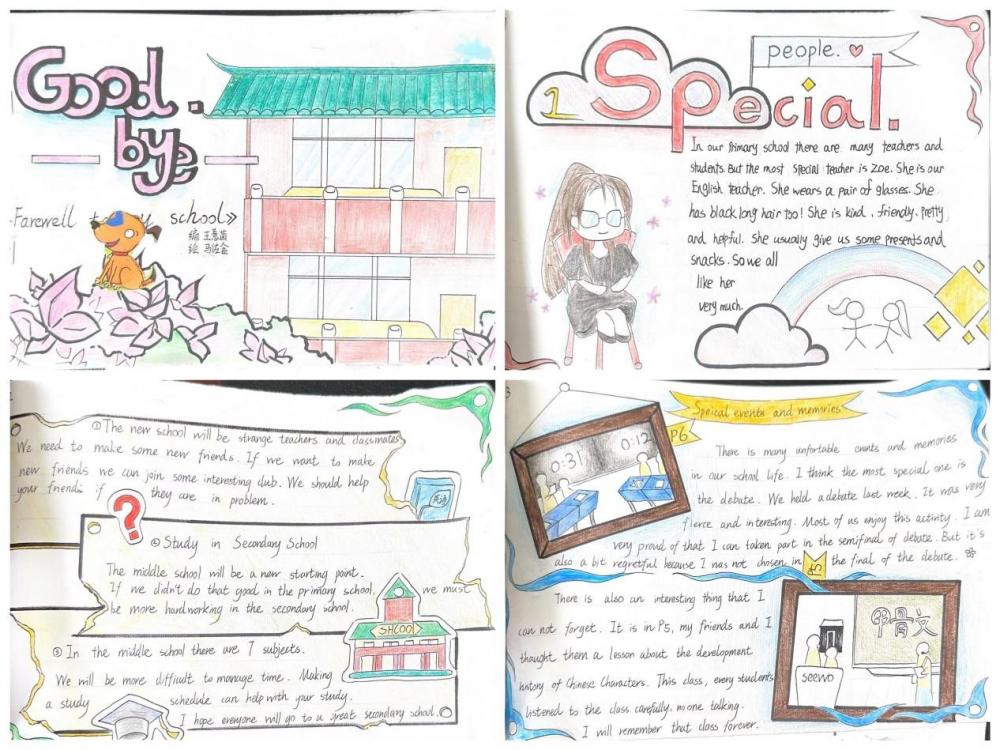 Good.
bye
Farewell to my school》
编 王惠茵
绘
1 Special.
people.
In our primary school there are many teachers and
students. But the most special teacher is Zoe. She is our
English teacher. She wears a pair of glasses. She
has black long hair too! She is kind, friendly, Pretty
and helpful. She usually give us some presents and
snacks. So we all
like her
very much.
①The new school will be strange teachers and classmates,
We need to make some new friends. If we want to make
new friends we can join some interesting club. We should help
your friends if they are in problem.
英语
?
②Study in Secondary School
The middle school will be a new starting point.
If we didn't do that good in the primary school, we must
be more hardworking in the secondary school.
SHCOOl
③In the middle school there are 7 subjects.
We will be more difficult to manage time. Making
a study schedule can help with your study.
I hope everyone will go to a great secondary school.
3
Speical events and memories
P6
0:31
0:12
There is many unfortable events and memories
in our school life. I think the most special one is
the debate. We held a debate last week. It was very
fierce and interesting. Most of us enjoy this activity. I am
very proud of that I can taken part in the semifinal of debate. But it's
also a bit regretful because I was not chosen in the final of the debate.
P5
There is also an interesting thing that I
can not forget. It is in P5, my friends and I
thaught them a lesson about the development
history of Chinese Characters. This class, every students
listened to the class carefully. no one talking.
I will remember that class forever.
甲骨文
seewo